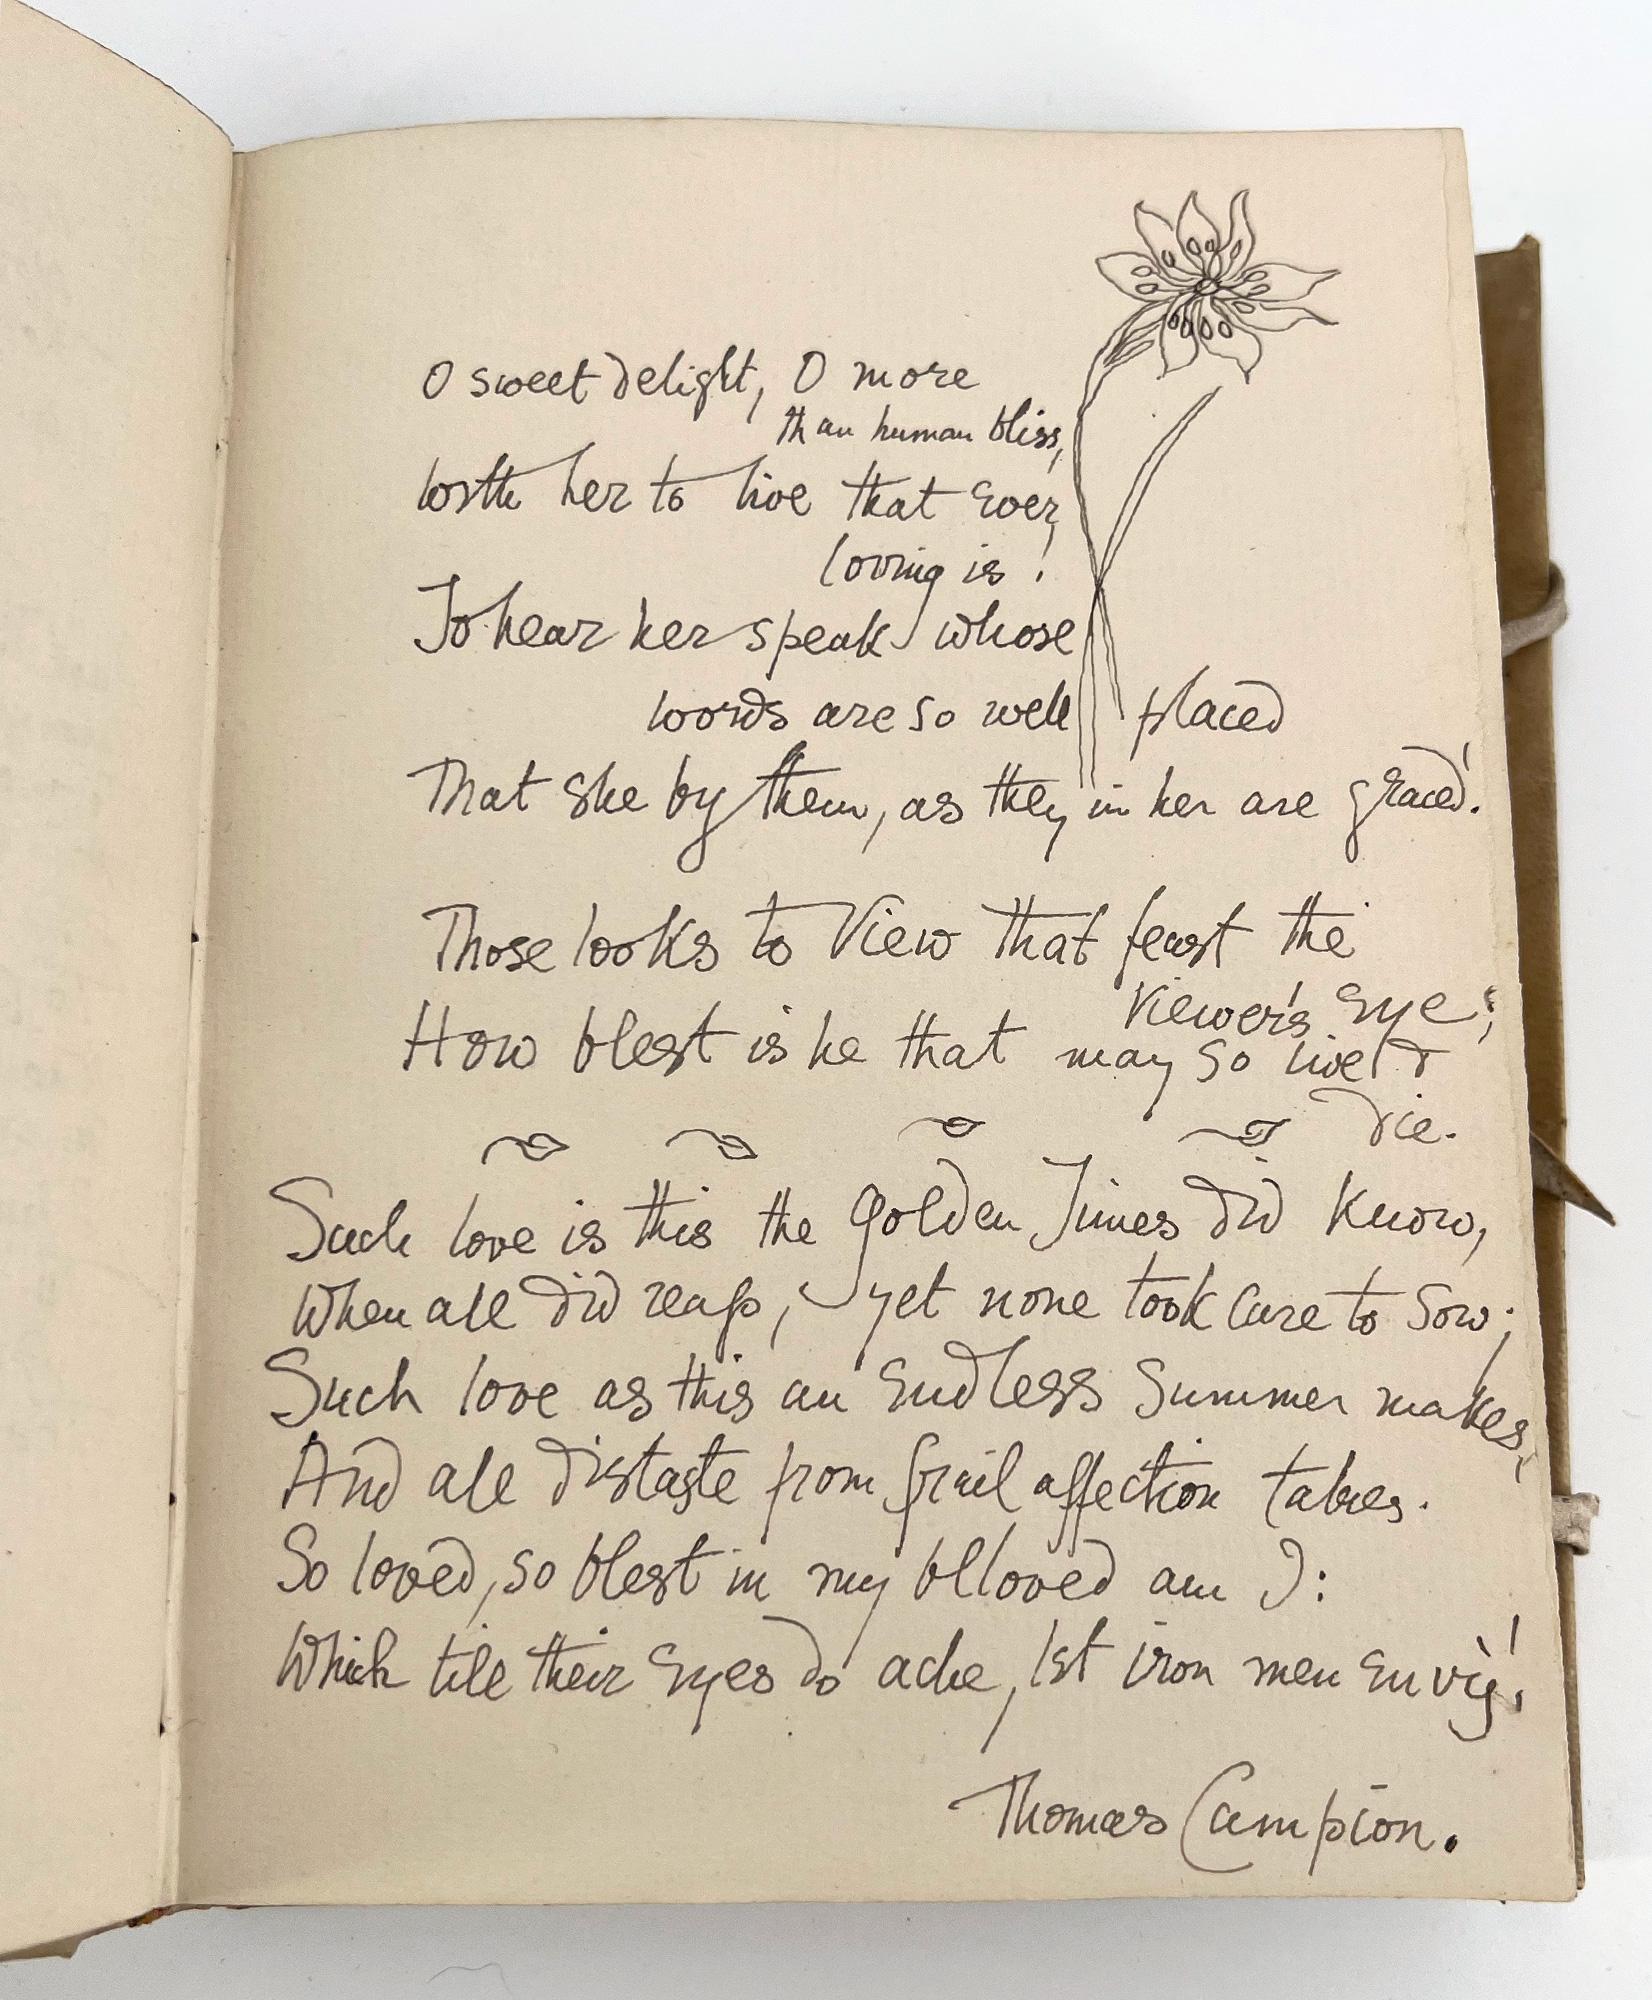 O sweet delight, O more
than human bliss,
With her to live that ever
loving is!
To hear her speak whose
words are so well placed
That she by them, as they in her are graced!
Those looks to View that feast the
Viewer's Eye;
How blest is he that may so live &
die.
Such love is this the golden Times did Know,
When all did reap, yet none took Care to Sow;
Such love as this an Endless Summer makes,
And all distaste from frail affection takes.
So loved, so blest in my beloved am I:
Which till their Eyes do ache, let iron men Envy!
Thomas Campion.